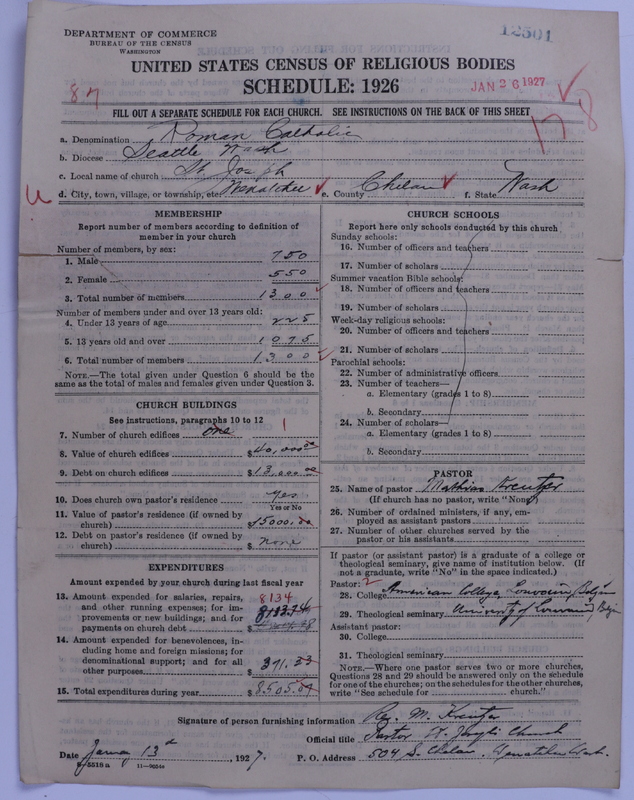 DEPARTMENT OF COMMERCE
BUREAU OF THE CENSUS
WASHINGTON
12501
UNITED STATES CENSUS OF RELIGIOUS BODIES
SCHEDULE: 1926
JAN 26 1927
87
FILL OUT A SEPARATE SCHEDULE FOR EACH CHURCH. SEE INSTRUCTIONS ON THE BACK OF THIS SHEET
178
a. Denomination Roman Catholic
b. Diocese Seattle Wash
c. Local name of church St. Joseph
d. City, town, village, or township, etc. Wenatchee e. County Chelan f. State Wash
MEMBERSHIP
Report number of members according to definition of
member in your church
Number of members, by sex:
1. Male 750
2. Female 550
3. Total number of members 1300
Number of members under and over 13 years old:
4. Under 13 years of age 225
5. 13 years old and over 1075
6. Total number of members 1300
NOTE.—The total given under Question 6 should be
same as the total of males and females given under Question 3.
CHURCH BUILDINGS
See instructions, paragraphs 10 to 12
7. Number of church edifices one 1
8. Value of church edifices $40,000 00
9. Debt on church edifices $13,000 00
10. Does church own pastor's residence Yes
Yes or No
11. Value of pastor's residence (if owned by
church) $5000.00
12. Debt on pastor's residence (if owned by
church) $ none
EXPENDITURES
Amount expended by your church during last fiscal year
13. Amount expended for salaries, repairs, 8134
and other running expenses; for im-
provements or new buildings; and for
payments on church debt $
14. Amount expended for benevolences, in-
cluding home and foreign missions; for
denominational support; and for all
other purposes $ 371.23
15. Total expenditures during year $ 8,505.04
CHURCH SCHOOLS
Report here only schools conducted by this church
Sunday schools:
16. Number of officers and teachers
17. Number of scholars
Summer vacation Bible schools:
18. Number of officers and teachers
19. Number of scholars
Week-day religious schools:
20. Number of officers and teachers
21. Number of scholars
Parochial schools:
22. Number of administrative officers
23. Number of teachers—
a. Elementary (grades 1 to 8)
b. Secondary
24. Number of scholars—
a. Elementary (grades 1 to 8)
b. Secondary
PASTOR
25. Name of pastor Mathias Kreutzer
(If church has no pastor, write "None")
26. Number of ordained ministers, if any, em-
ployed as assistant pastors
27. Number of other churches served by the
pastor or his assistants
If pastor (or assistant pastor) is a graduate of a college or
theological seminary, give name of institution below. (If
not a graduate, write "No" in the space indicated.)
Pastor: 2
28. College American College, Louvain, Belgium
29. Theological seminary University of Louvain, Belgi
Assistant pastor:
30. College
31. Theological seminary
NOTE.—Where one pastor serves two or more churches,
Questions 28 and 29 should be answered only on the schedule
for one of the churches; on the schedules for the other churches,
write "See schedule for church."
Signature of person furnishing information Rev. M. Kreutzer
Official title Pastor St. Joseph Church
Date January 13th, 1927. P. O. Address 504 S. Chelan, Wenatchee Wash.
8-5518a 11-9654a